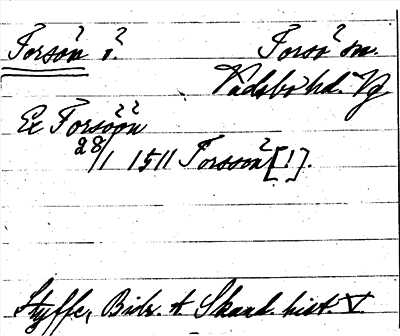 Torsön ö. Torsö sn.
Vadsbo hd. Vg
Ex Torsöön
28/1 1511 Torsoön [!].
Styffe, Bidr. t Skand. hist. V.